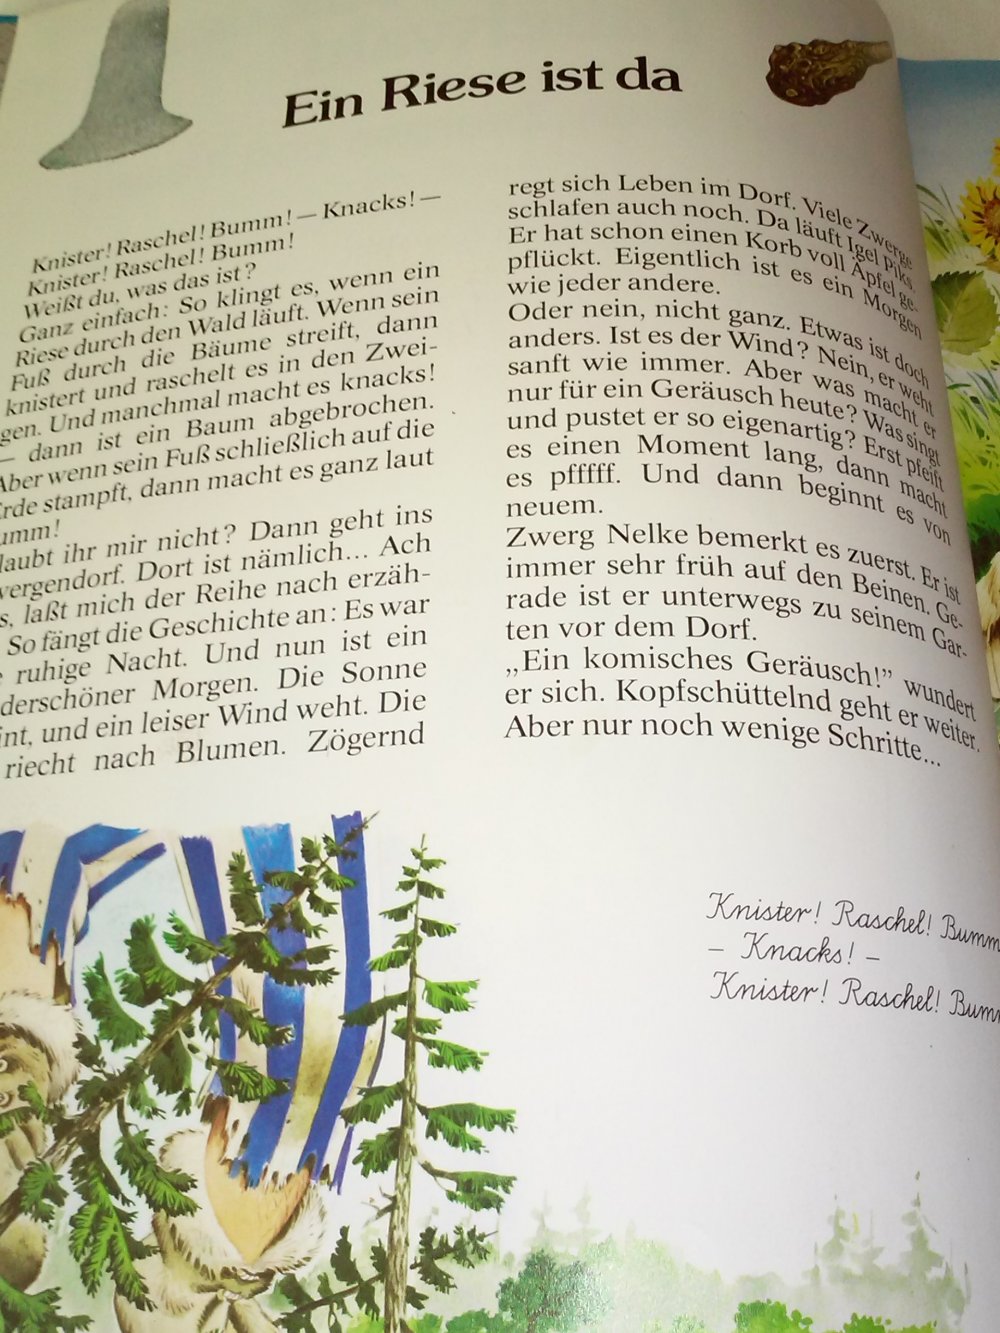 Ein Riese ist da
Knister! Raschel! Bumm! — Knacks! —
Knister! Raschel! Bumm!
Weißt du, was das ist?
Ganz einfach: So klingt es, wenn ein
Riese durch den Wald läuft. Wenn sein
Fuß durch die Bäume streift, dann
knistert und raschelt es in den Zwei-
gen. Und manchmal macht es knacks!
— dann ist ein Baum abgebrochen.
Aber wenn sein Fuß schließlich auf die
Erde stampft, dann macht es ganz laut
umm!
laubt ihr mir nicht? Dann geht ins
wergendorf. Dort ist nämlich... Ach
s, laßt mich der Reihe nach erzäh-
So fängt die Geschichte an: Es war
ruhige Nacht. Und nun ist ein
derschöner Morgen. Die Sonne
int, und ein leiser Wind weht. Die
riecht nach Blumen. Zögernd
regt sich Leben im Dorf. Viele Zwerge
schlafen auch noch. Da läuft Igel Piks.
Er hat schon einen Korb voll Äpfel ge-
pflückt. Eigentlich ist es ein Morgen
wie jeder andere.
Oder nein, nicht ganz. Etwas ist doch
anders. Ist es der Wind? Nein, er weht
sanft wie immer. Aber was macht er
nur für ein Geräusch heute? Was singt
und pustet er so eigenartig? Erst pfeift
es einen Moment lang, dann macht
es pfffff. Und dann beginnt es von
neuem.
Zwerg Nelke bemerkt es zuerst. Er ist
immer sehr früh auf den Beinen. Ge-
rade ist er unterwegs zu seinem Gar-
ten vor dem Dorf.
„Ein komisches Geräusch!” wundert
er sich. Kopfschüttelnd geht er weiter.
Aber nur noch wenige Schritte...
Knister! Raschel! Bumm
– Knacks! –
Knister! Raschel! Bumm